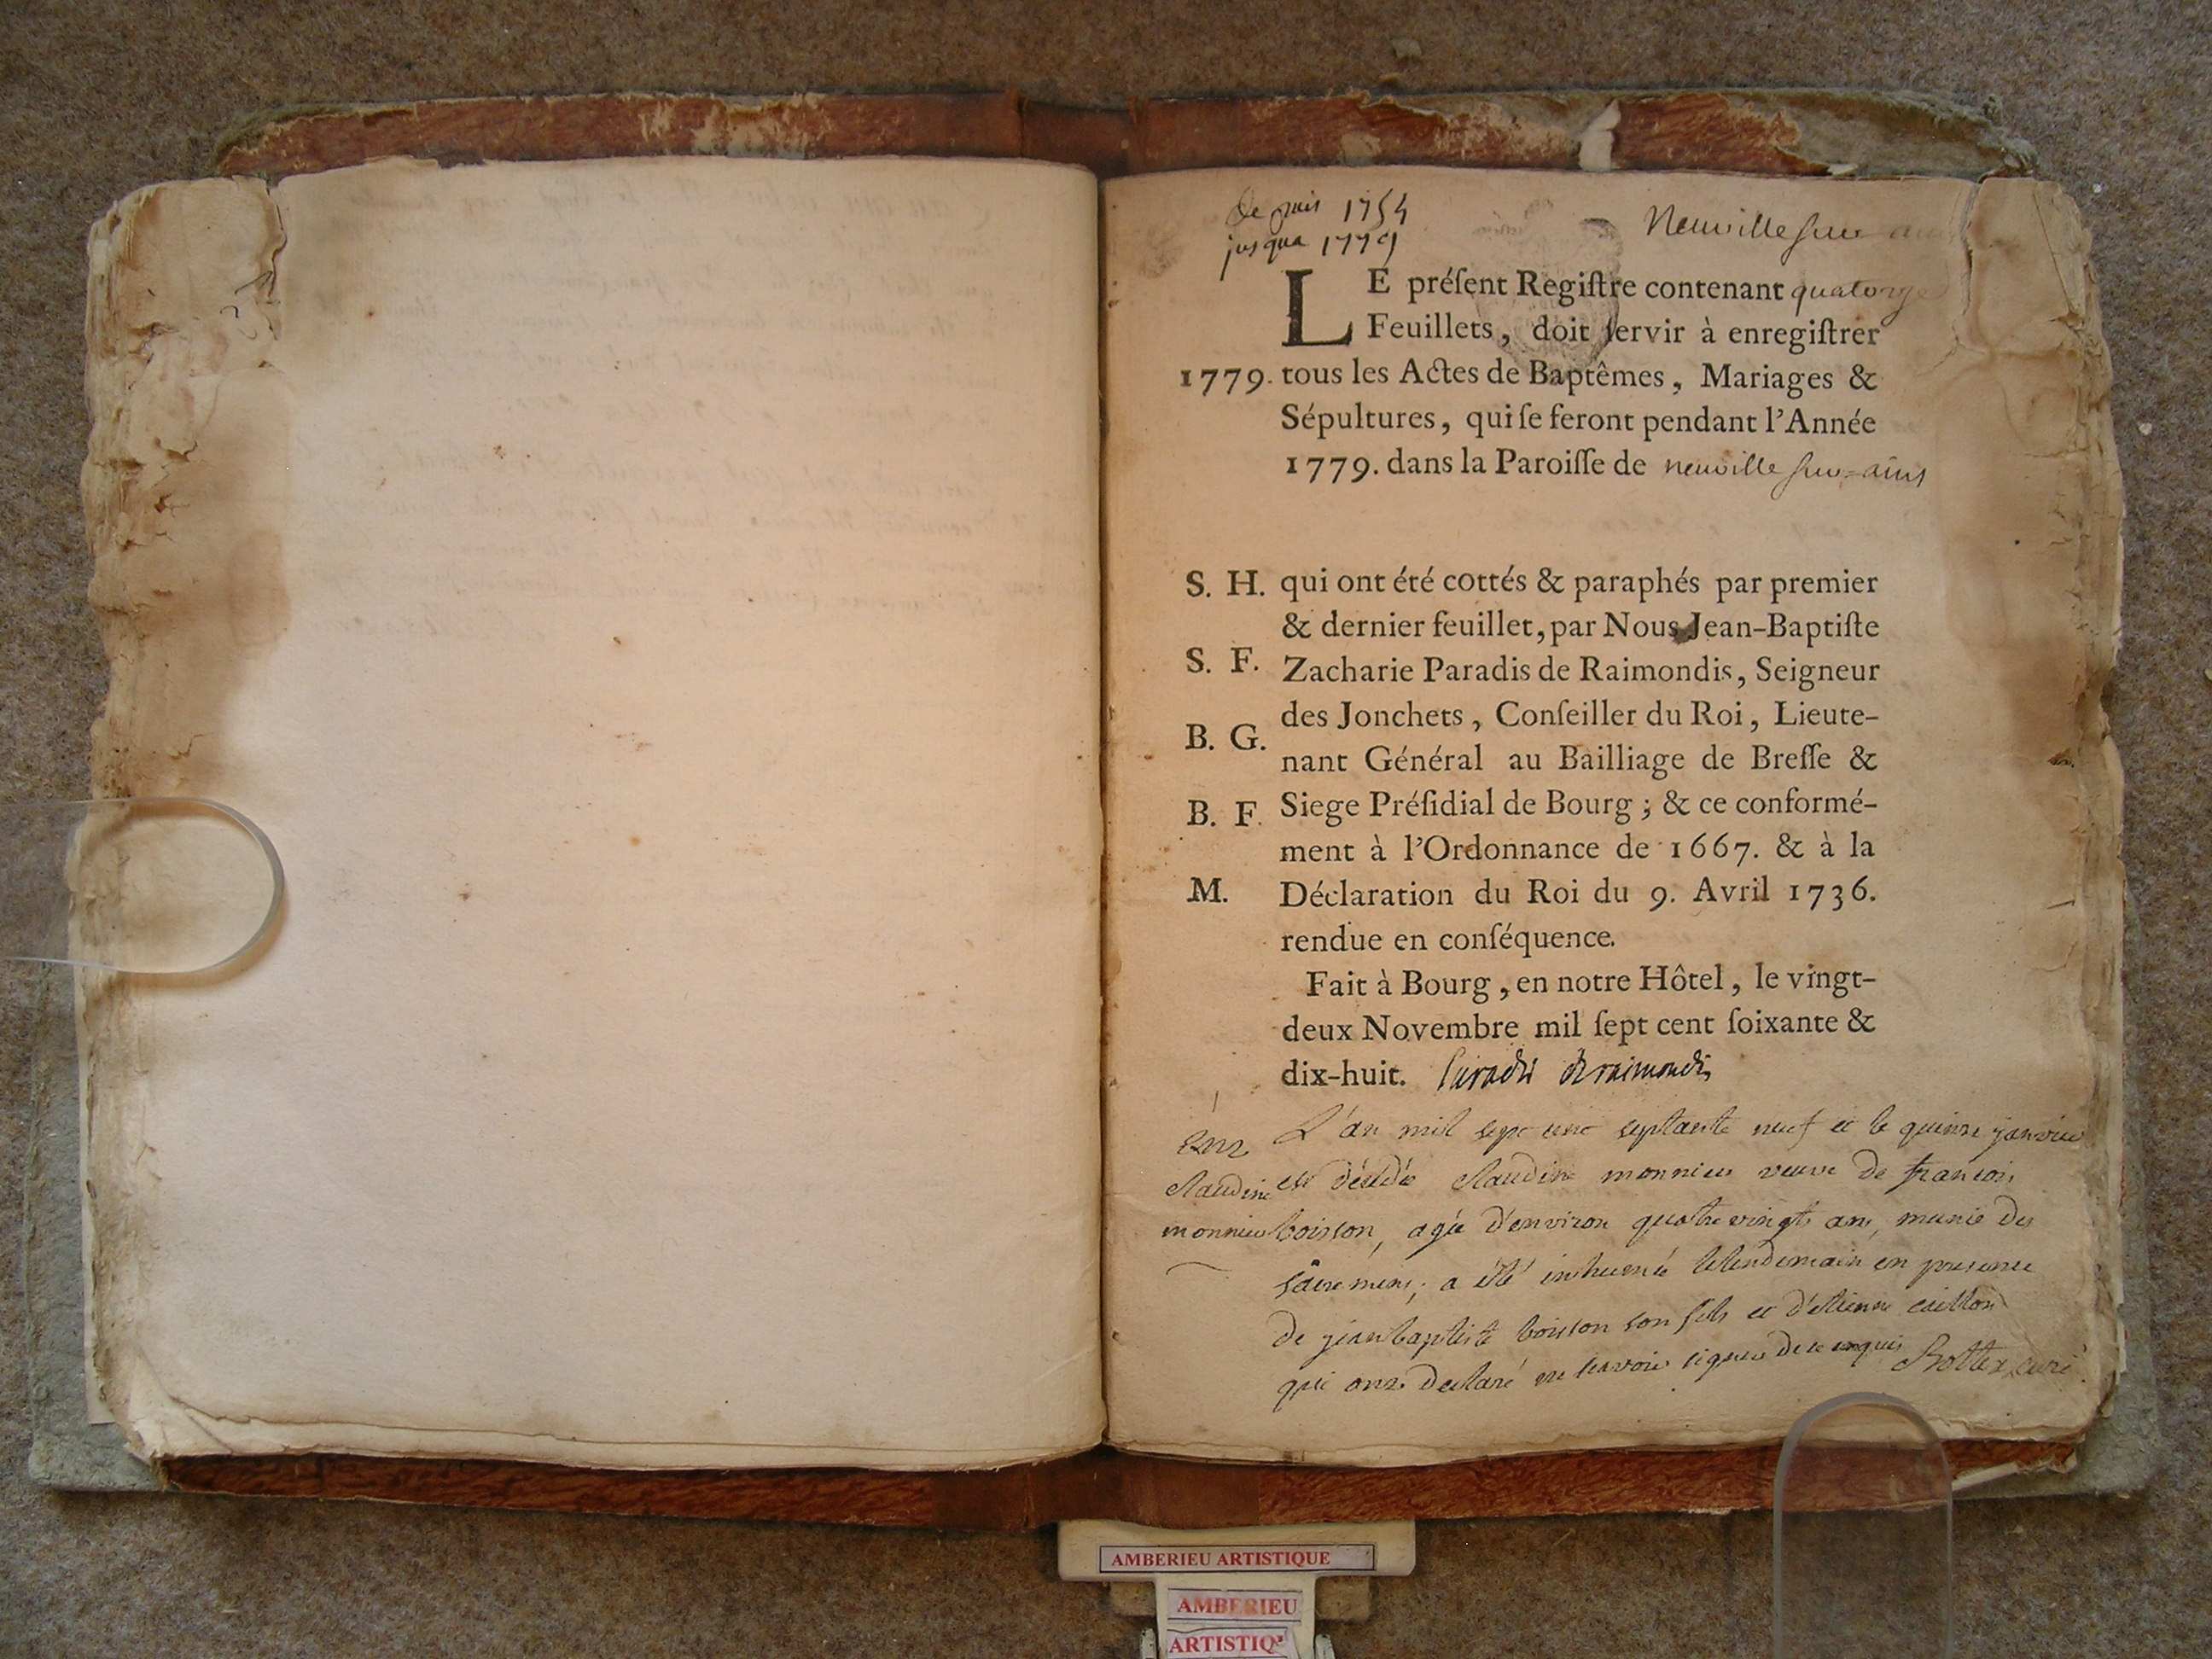 de puis 1754
jusqua 1779
Neuville sur ain
LE préſent Regiſtre contenant quatorze
Feuillets, doit ſervir à enregiſtrer
1779. tous les Actes de Baptêmes, Mariages &
Sépultures, qui ſe feront pendant l'Année
1779. dans la Paroiſſe de neuville sur-ains
S. H. qui ont été cottés & paraphés par premier
& dernier feuillet, par Nous Jean-Baptiſte
S. F. Zacharie Paradis de Raimondis, Seigneur
des Jonchets, Conſeiller du Roi, Lieute-
B. G.
nant Général au Bailliage de Breſſe &
B. F. Siege Préſidial de Bourg ; & ce conformé-
ment à l'Ordonnance de 1667. & à la
M. Déclaration du Roi du 9. Avril 1736.
rendue en conſéquence.
Fait à Bourg, en notre Hôtel, le vingt-
deux Novembre mil ſept cent ſoixante &
dix-huit. Paradis de raimondis
L'an mil sept cent septante neuf et le quinze janvier
Claudine est décédée Claudine monnier veuve de francois
monnier boisson, agée d'environ quatre vingts ans, munie des
sacremens; a été inhumée le lendemain en presence
de jean baptiste boisson son fils et d'etienne
qui ont declaré ne scavoir signer de ce enquis Bottex, curé.
AMBERIEU ARTISTIQUE
AMBERIEU
ARTISTIQ